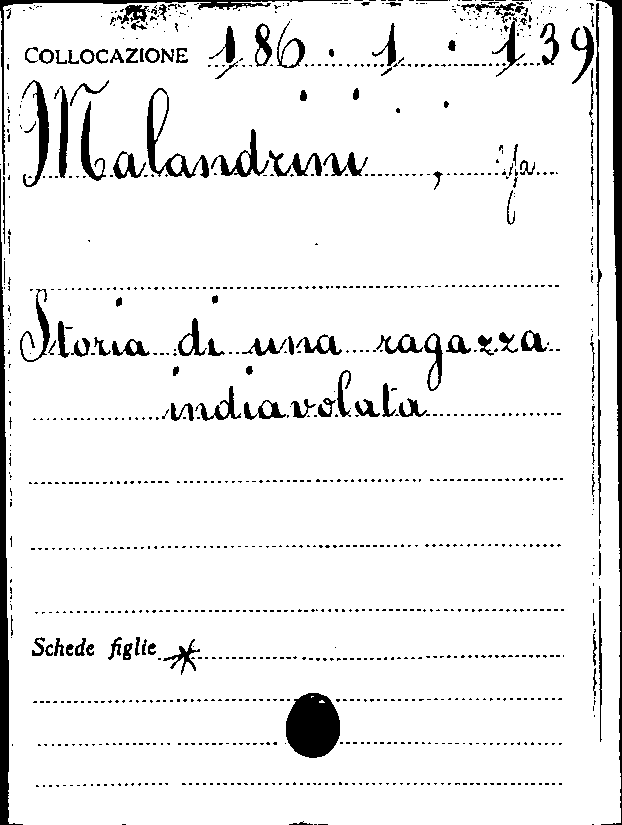 COLLOCAZIONE 186.1.139
Malandrini,
Storia di una ragazza
indiavolata
Schede figlie *